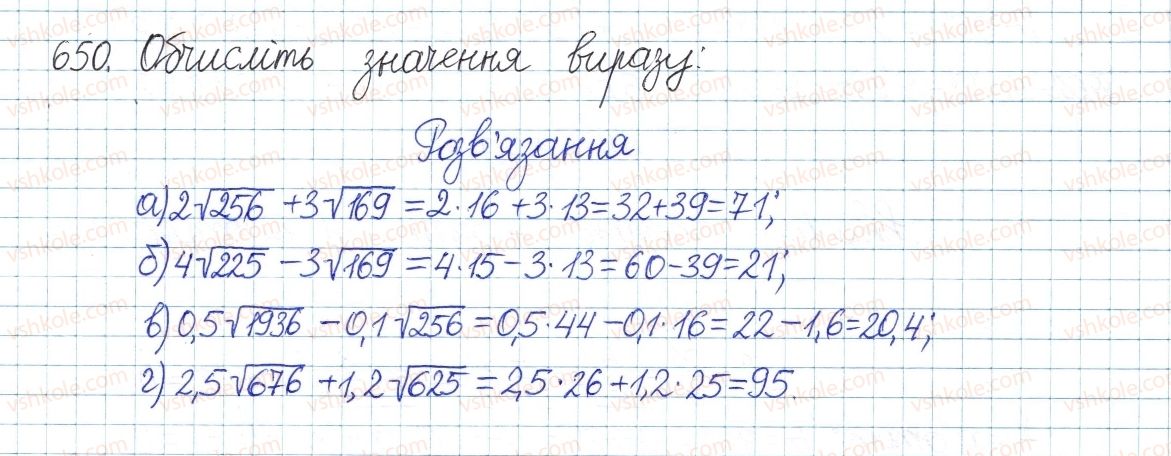 650. Обчисліть значення виразу:
Розв'язання
а) 2√256 + 3√169 = 2·16 + 3·13 = 32 + 39 = 71;
б) 4√225 − 3√169 = 4·15 − 3·13 = 60 − 39 = 21;
в) 0,5√1936 − 0,1√256 = 0,5·44 − 0,1·16 = 22 − 1,6 = 20,4;
г) 2,5√676 + 1,2√625 = 2,5·26 + 1,2·25 = 95.
vshkole.com